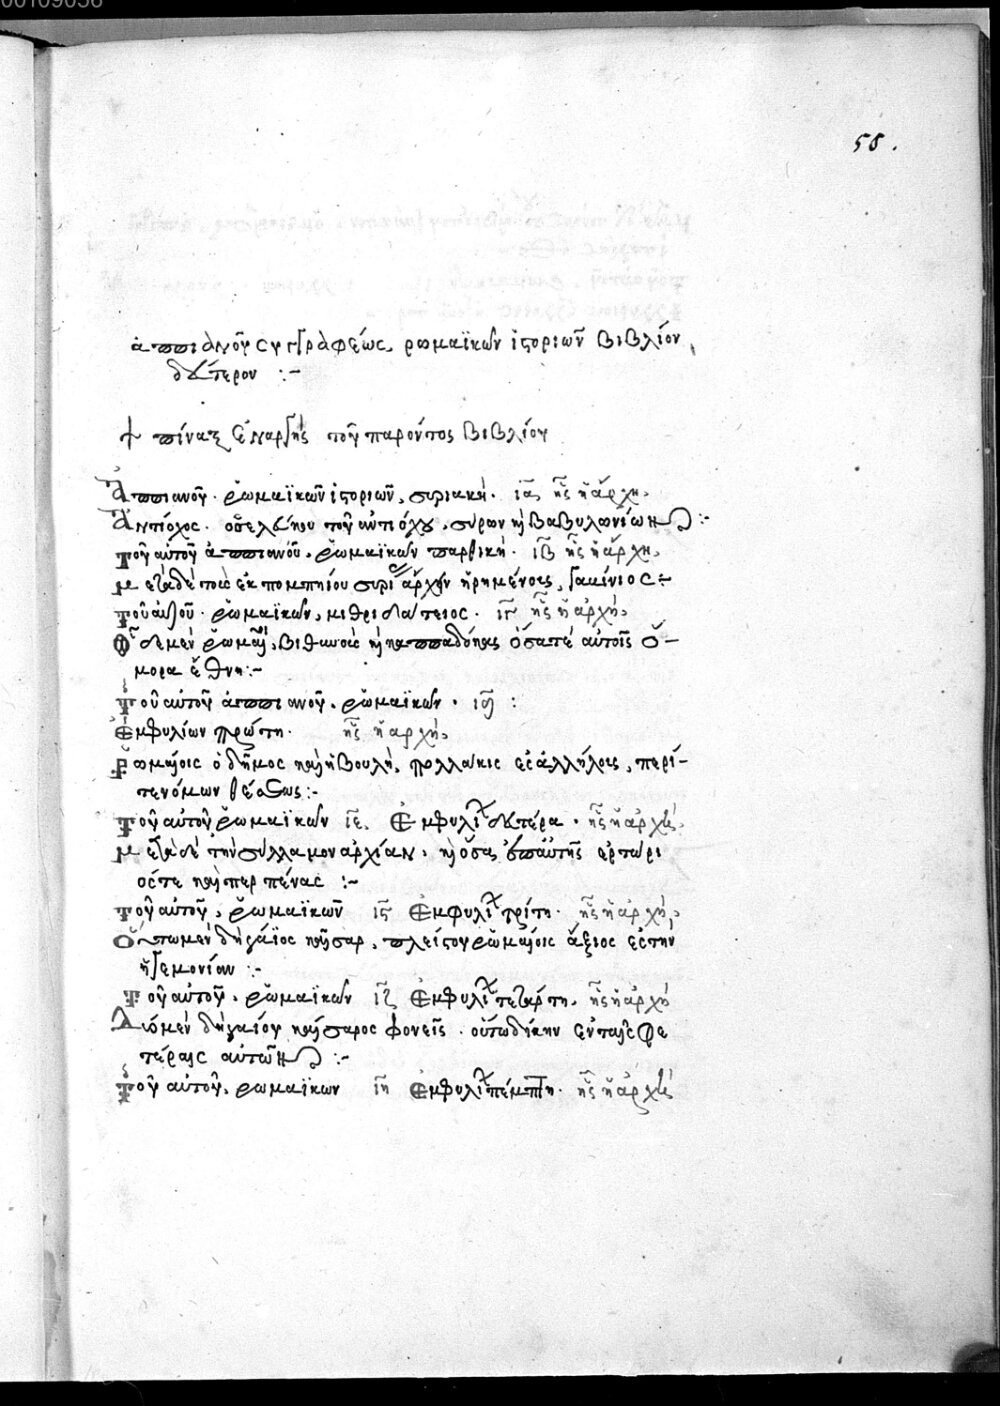 00109058
58.
ἀππιανοῦ συγγραφέως, ρωμαϊκῶν ἱστοριῶν βιβλίον
δεύτερον :-
πίναξ ἐναργὴς τοῦ παρόντος βιβλίου
Ἀππιανοῦ. ῥωμαϊκῶν ἱστοριῶν, συριακή. ια ἧς ἡ ἀρχή.
Ἀντίοχος. ὁ σελεύκου τοῦ ἀντιόχου, σύρων καὶ βαβυλωνίων :-
τοῦ αὐτοῦ ἀππιανοῦ. ῥωμαϊκῶν παρθική. ιβ ἧς ἡ ἀρχή.
μετὰ δὲ πομπηίου συρίας ἄρχειν ἡρημένος, γαμίνιος :-
τοῦ αὐτοῦ. ῥωμαϊκῶν, μιθριδάτειος. ιγ ἧς ἡ ἀρχή.
ὧδε μὲν ῥωμαῖοι, βιθυνοὺς καὶ καππαδόκας ὅσα τε αὐτοῖς ὅ-
μορα ἔθνη :-
τοῦ αὐτοῦ ἀππιανοῦ. ῥωμαϊκῶν. ιδ :
ἐμφυλίων πρώτη. ἧς ἡ ἀρχή.
Ῥωμαίοις ὁ δῆμος καὶ ἡ βουλὴ, πολλάκις ἐς ἀλλήλους, περί-
τε νόμων θέσεως :-
τοῦ αὐτοῦ ῥωμαϊκῶν ιε. ἐμφυλίων δευτέρα. ἧς ἡ ἀρχή.
μετὰ δὲ τὴν σύλλα μοναρχίαν. καὶ ὅσα ἐπ' αὐτῆς σερτώρι
ός τε καὶ περπένας :-
τοῦ αὐτοῦ, ῥωμαϊκῶν ις ἐμφυλίων τρίτη. ἧς ἡ ἀρχή.
οὕτω μὲν δὴ γάϊος καῖσαρ, πλείστου ῥωμαίοις ἄξιος ἐς τὴν
ἡγεμονίαν :-
τοῦ αὐτοῦ. ῥωμαϊκῶν ιζ ἐμφυλίων τετάρτη. ἧς ἡ ἀρχή
Δύο μὲν δὴ γαίου καίσαρος φονεῖς. οὕτω δίκην ἐν ταῖς σφε
τέραις αὐτῶν :-
τοῦ αὐτοῦ. ῥωμαϊκῶν ιη ἐμφυλίων πέμπτη. ἧς ἡ ἀρχή